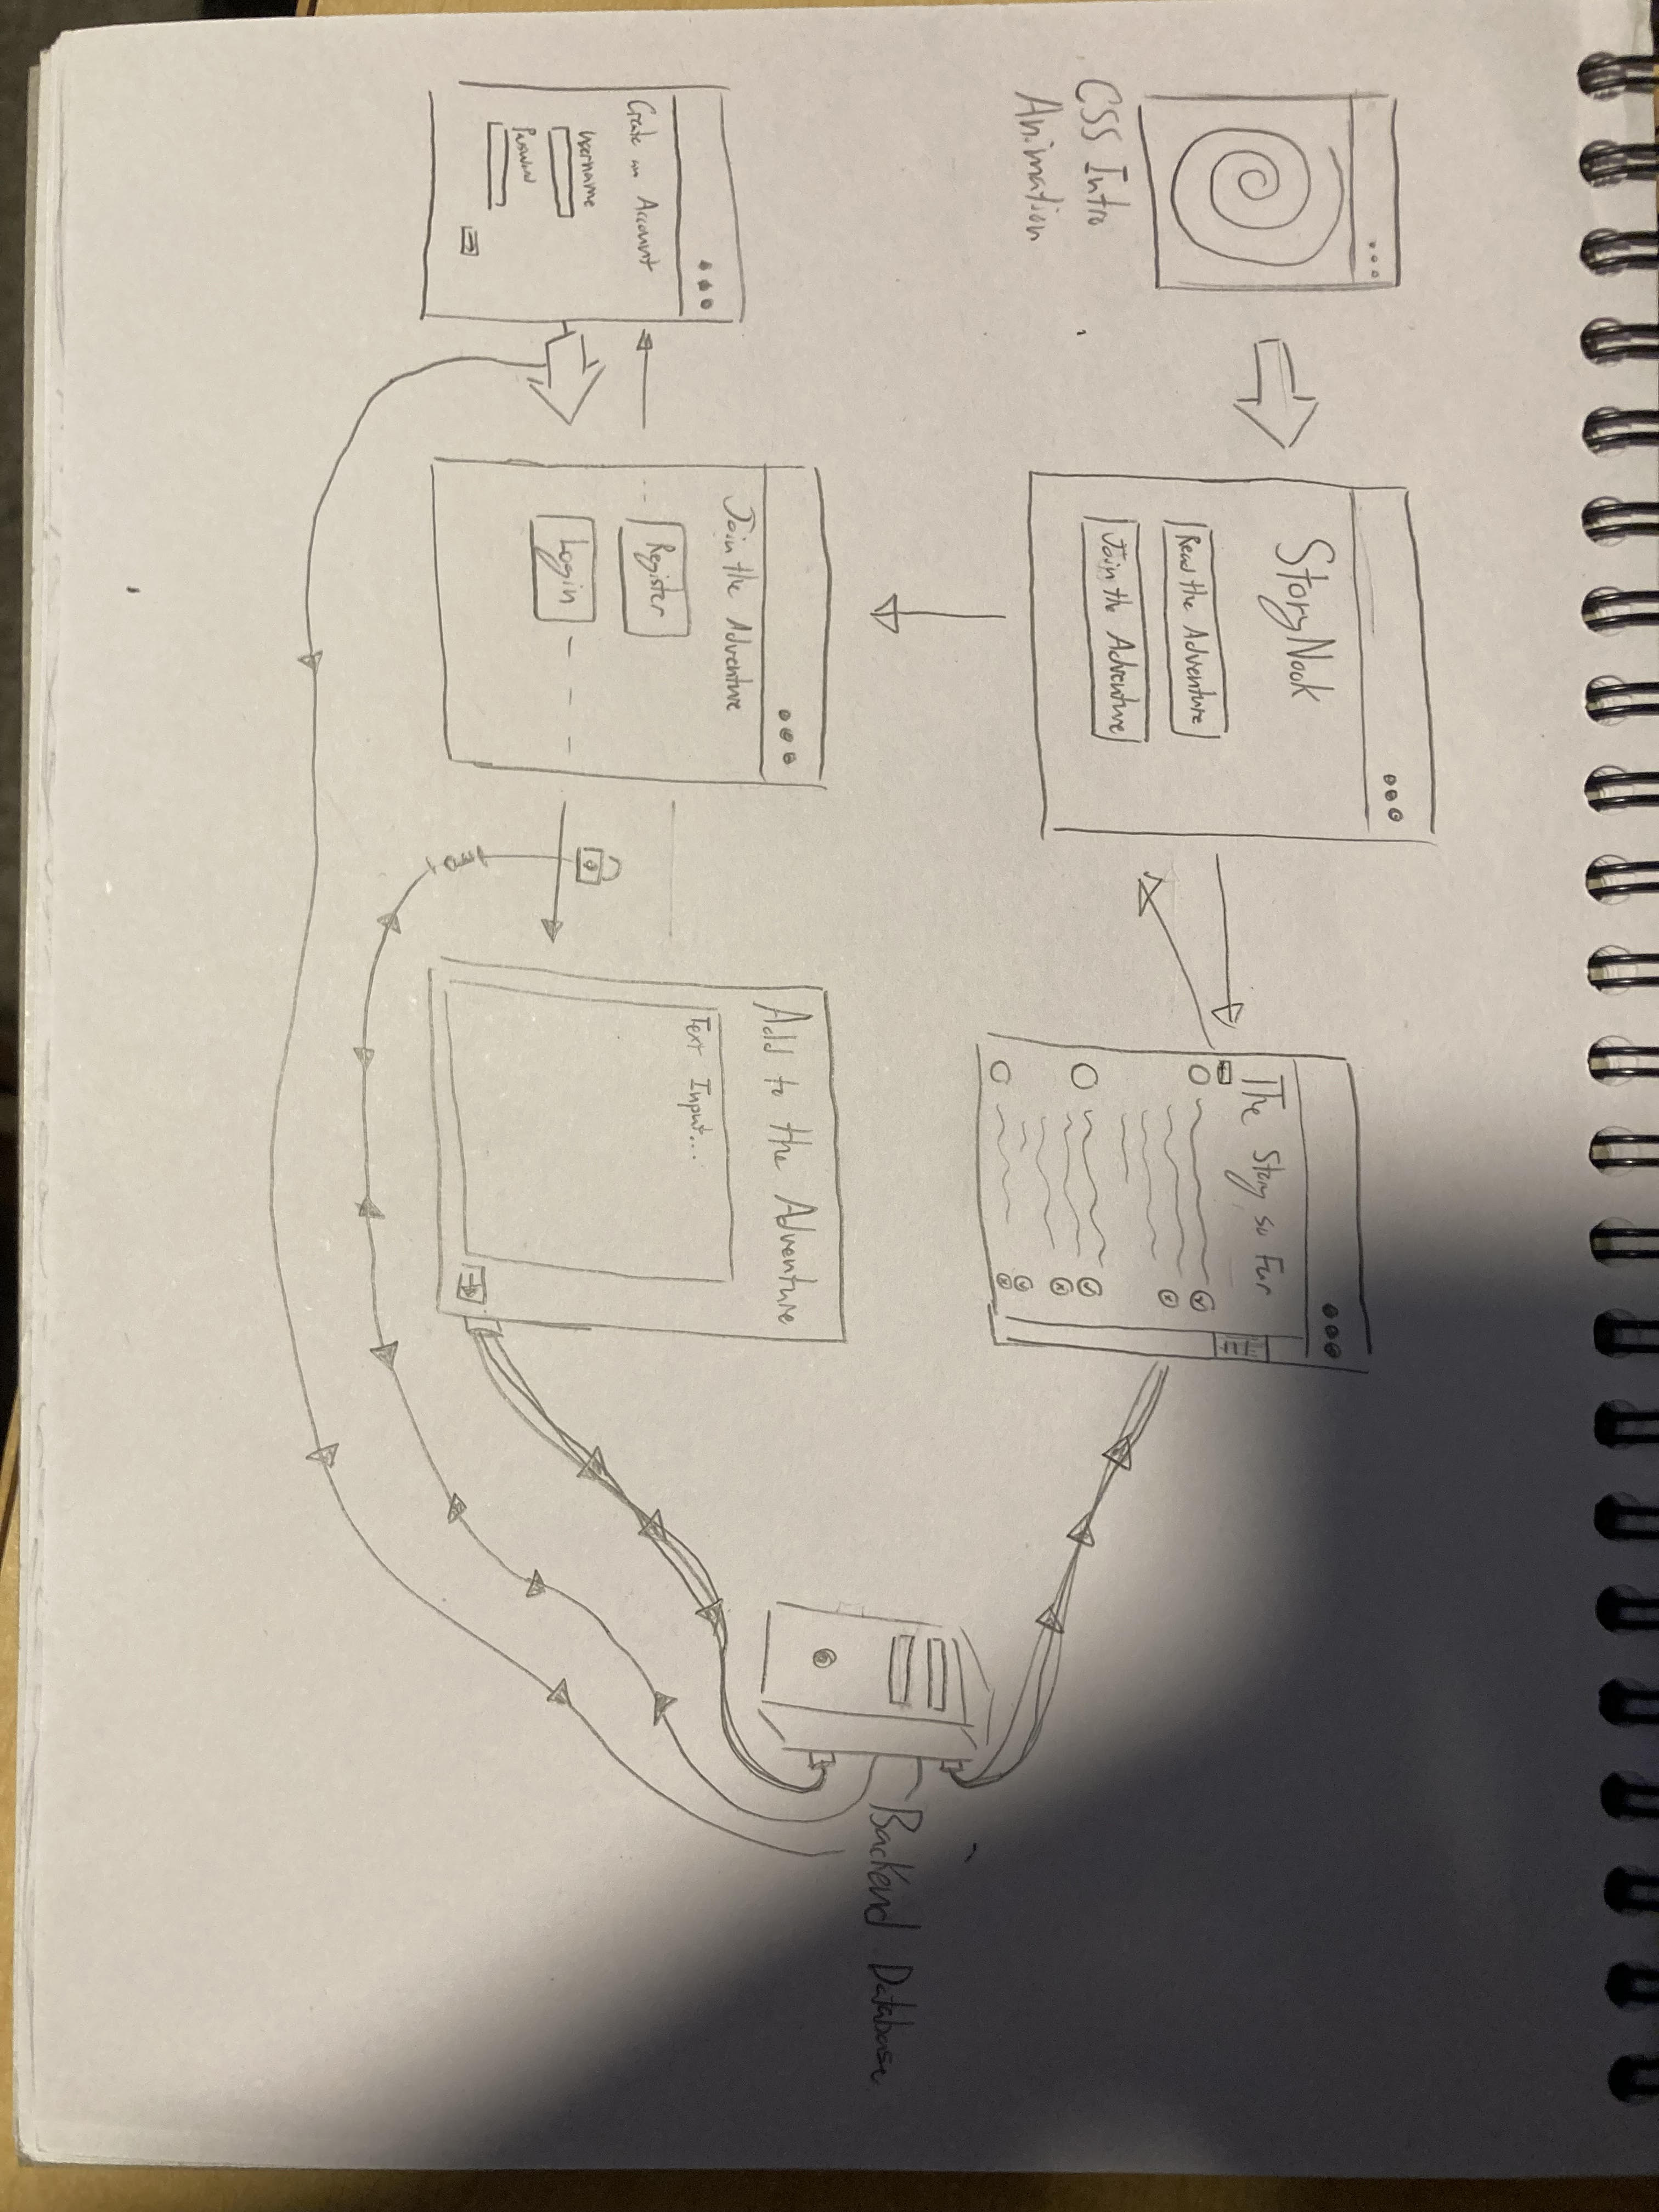 CSS Intro
Animation
StoryNook
Read the Adventure
Join the Adventure
The Story so Far
Create an Account
username
Password
Join the Adventure
Register
Login
Add to the Adventure
Text Input...
Backend Database